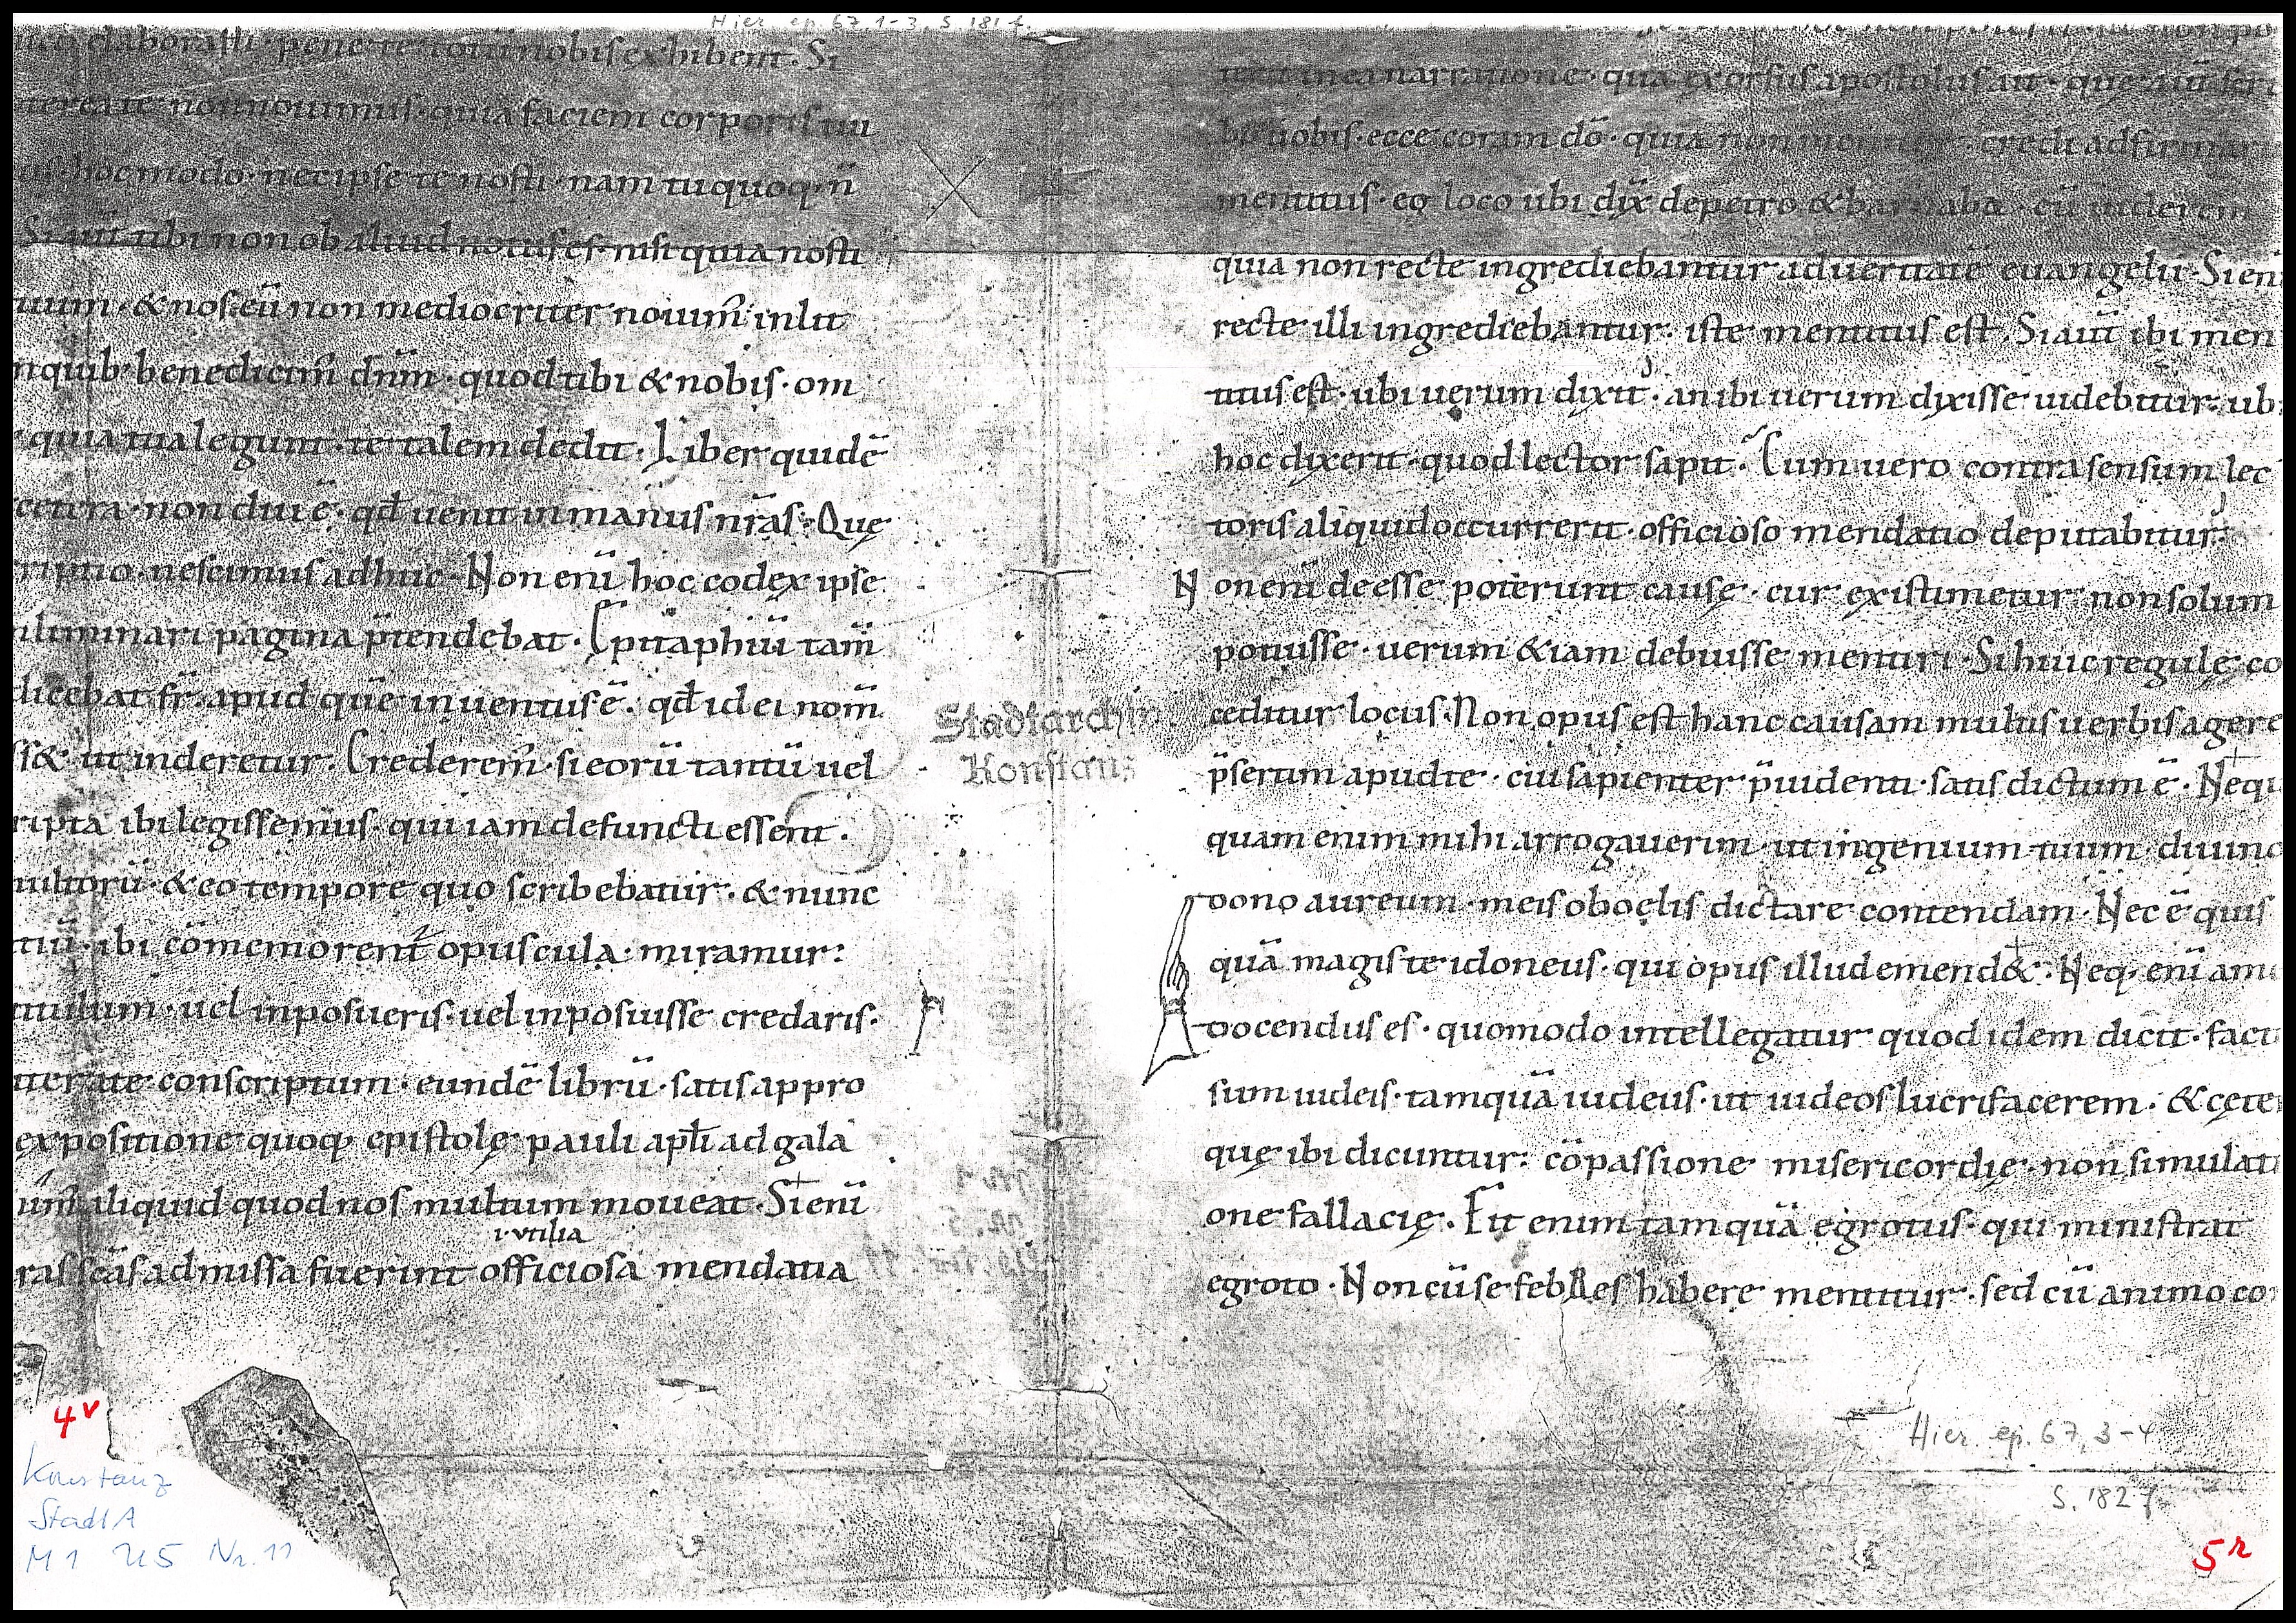 Hier. ep. 67, 1-3, S. 181 f.
elaborasti · pene te totū nobis exhibent · Si
terea te non nouimus · quia faciem corporis tui
hoc modo · nec ipse te nosti · nam tu quoq; n̄
Si aūt tibi non ob aliud notus es · nisi quia nosti
tuum · & nos eū non mediocriter nouim̄ in litt
quib; benedicim̄ dn̄m · quod tibi & nobis · om
quia tua legunt · te talem dedit · Liber quidē
cetera · non diu ē · qđ uenit in manus nr̄as · Que
riptio · nescimus adhuc · Non eni hoc codex ipse
liminari pagina p̄tendebat · Epitaphiū tam̄
dicebat fr̄ · apud quē inuentus ē · qđ id ei nom̄
ss& ut inderetur · Crederem̄ · si eorū tantū uel
ripta ibi legissemus · qui iam defuncti essent ·
multorū · & eo tempore quo scribebatur · & nunc
tiū · ibi cōmemorent opuscula · miramur:
titulum · uel inposueris · uel inposuisse credaris ·
tterate conscriptum · eundē librū · satis appro
expositione quoq; epistolę pauli apłi ad gala
im̄ aliquid quod nos multum moueat · Si eni
i · utilia
ras scās admissa fuerint officiosa mendatia
Stadtarchiv
Konstanz
4v
Konstanz
StadtA
M1 U5 Nr. 11
terit in ea narratione · qua exorsus apostolus ait · quę aūt scri
bo uobis · ecce coram dō · quia non mentior · credi adfirmar
mentitus · eo loco ubi dix̄ de petro & barnaba · cū uiderem
quia non recte ingrediebantur ad ueritatē euangelii · Si eni
recte illi ingrediebantur · iste mentitus est · Si aūt ibi men
titus est · ubi uerum dixit · an ibi uerum dixisse uidebitur · ub
hoc dixerit · quod lector sapit · Cum uero contra sensum lec
toris aliquid occurrerit · officioso mendatio deputabitur ·
Non eni deesse poterunt causę · cur existimetur non solum
potuisse · uerum & iam debuisse mentiri · Si huic regulę co
ceditur locus · Non opus est hanc causam multis uerbis agere
p̄sertim apud te · cui sapienter p̄uidenti · satis dictum ē · Nequ
quam enim mihi arrogauerim · ut ingenium tuum · diuino
dono aureum · meis obocelis dictare contendam · Nec ē quis
quā magis te idoneus · qui opus illud emend& · Neq; eni a me
docendus es · quomodo intellegatur quod idem dicit · fact
sum iudeis · tamquā iudeus · ut iudeos lucrifacerem · & cęte
quę ibi dicuntur: cōpassione misericordię · non simulati
one fallacię · Fit enim tamquā egrotus · qui ministrat
egroto · Non cū se febres habere mentitur · sed cū animo co
Hier. ep. 67, 3-4
S. 182 f.
5r